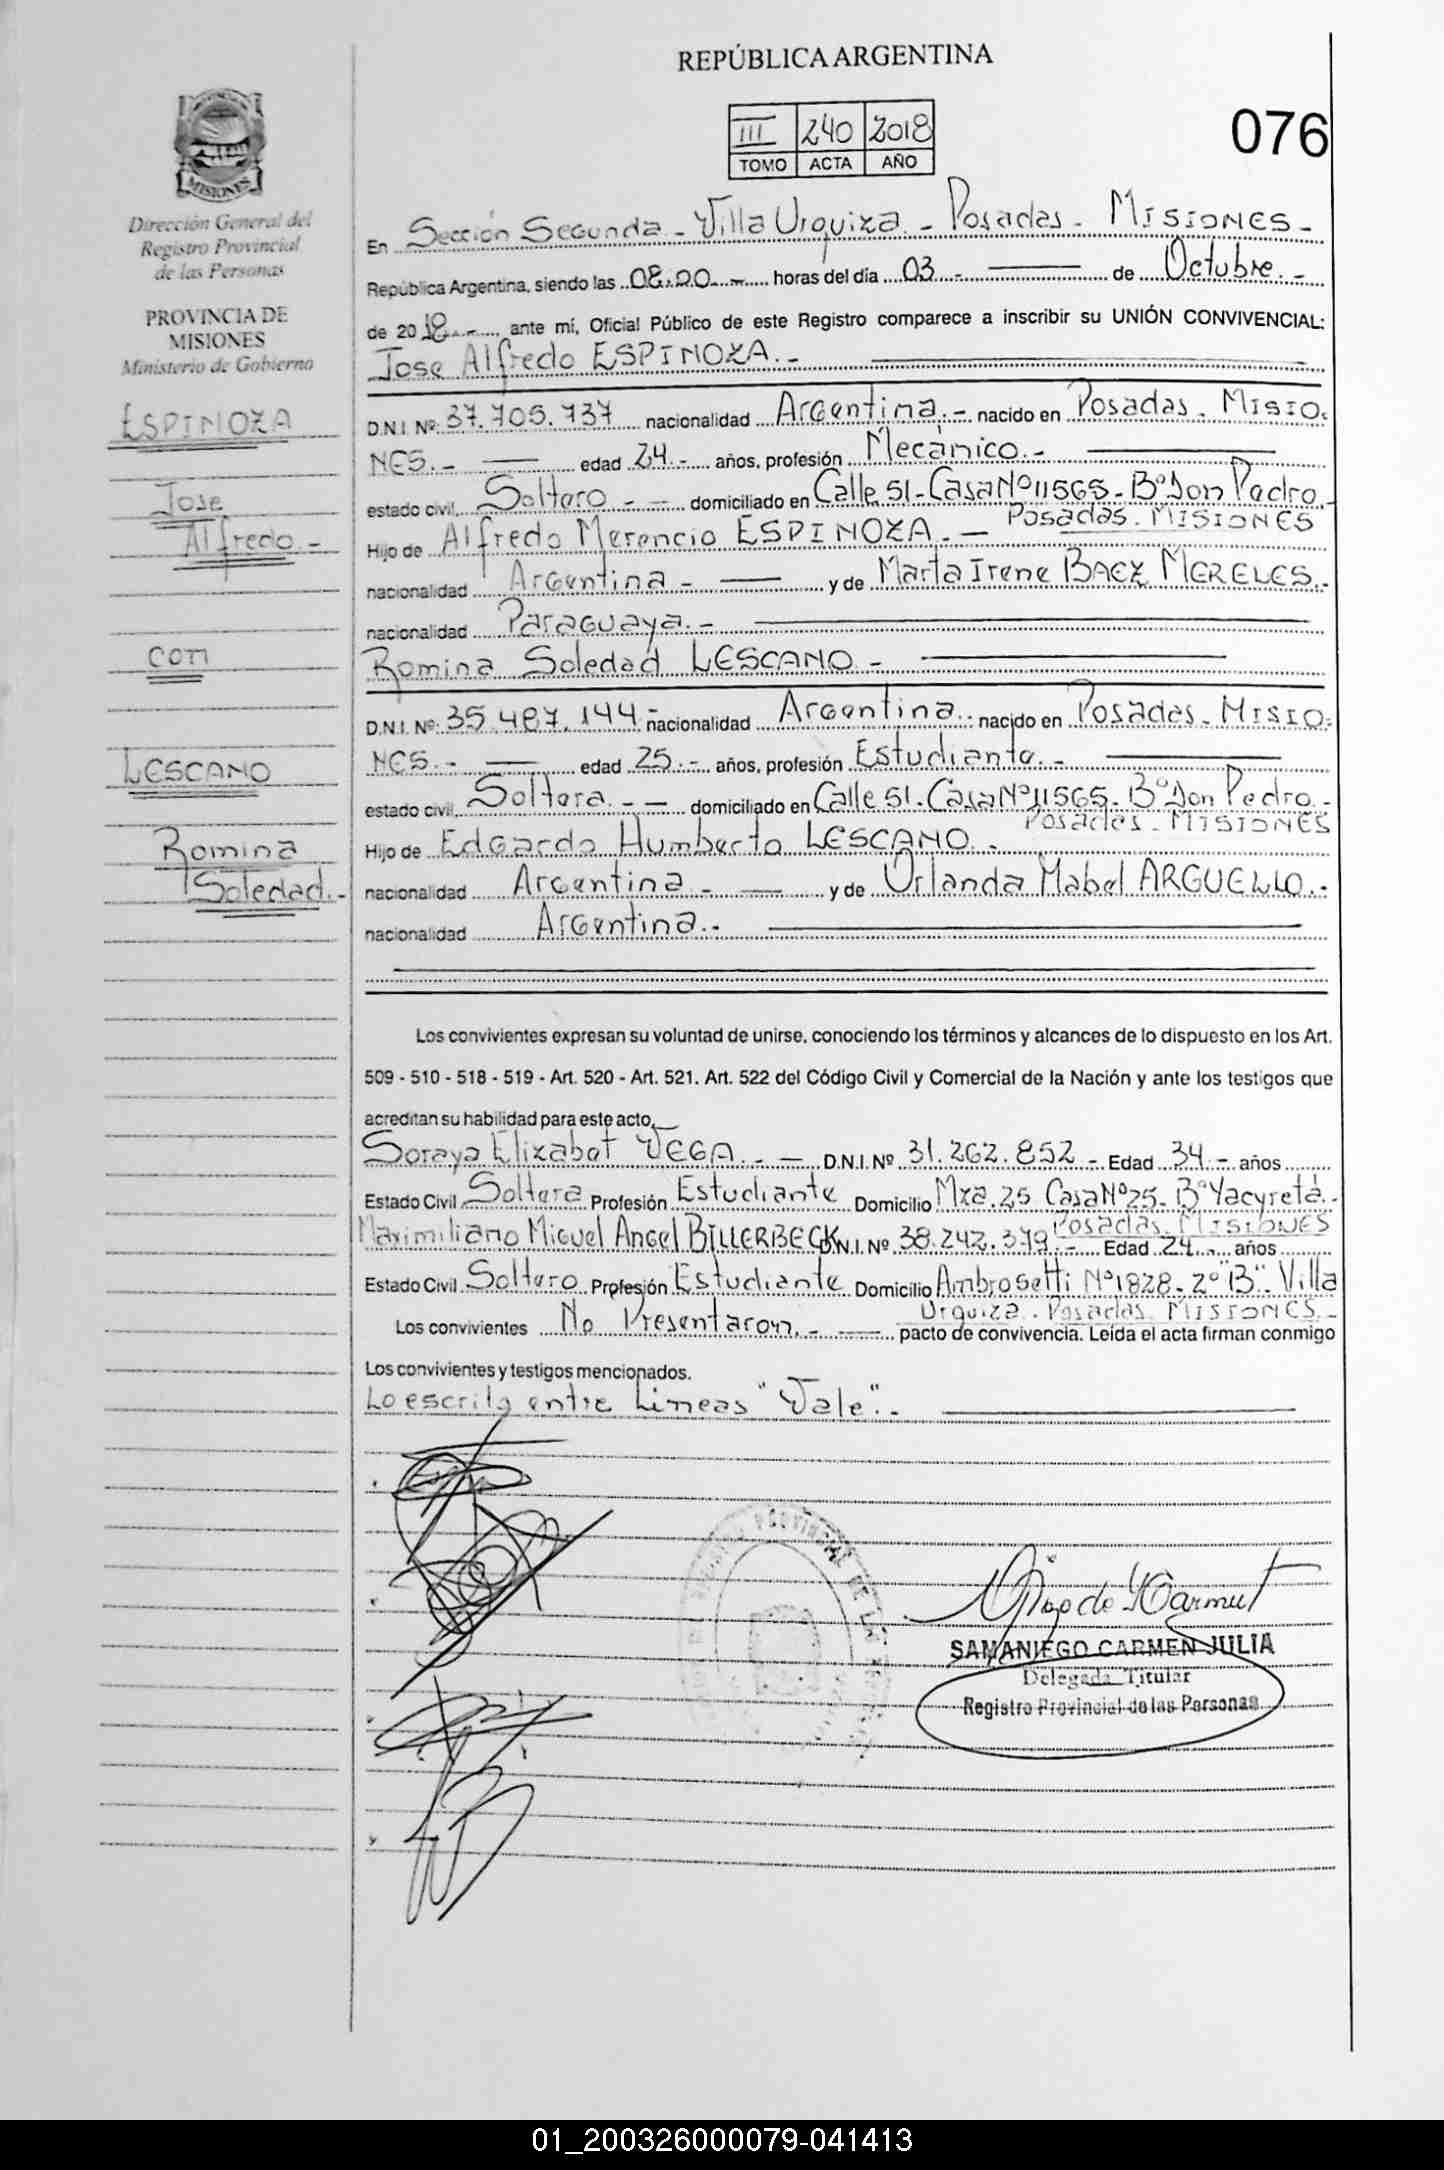 REPÚBLICA ARGENTINA
III 240 2018
TOMO ACTA AÑO
076
MISIONES
Dirección General del
Registro Provincial
de las Personas
PROVINCIA DE
MISIONES
Ministerio de Gobierno
ESPINOZA
Jose
Alfredo.-
con
LESCANO
Romina
Soledad.-
En Sección Segunda - Villa Urquiza - Posadas - MISIONES -
República Argentina, siendo las 08:00.- horas del día 03.- de Octubre.-
de 2018.- ante mí, Oficial Público de este Registro comparece a inscribir su UNIÓN CONVIVENCIAL:
Jose Alfredo ESPINOZA.-
D.N.I. Nº: 37.705.737 nacionalidad Argentina.- nacido en Posadas - MISIO-
NES.- edad 24.- años, profesión Mecánico.-
estado civil Soltero - domiciliado en Calle 51 - Casa Nº 11565 - Bº Don Pedro -
Posadas - MISIONES
Hijo de Alfredo Merencio ESPINOZA.-
nacionalidad Argentina - y de Marta Irene BAEZ MERELES.-
nacionalidad Paraguaya.-
Romina Soledad LESCANO -
D.N.I. Nº: 35.487.144 nacionalidad Argentina. nacido en Posadas - MISIO-
NES.- edad 25.- años, profesión Estudiante.-
estado civil Soltera.- domiciliado en Calle 51 - Casa Nº 11565 - Bº Don Pedro.-
Posadas - MISIONES
Hijo de Edgardo Humberto LESCANO.-
nacionalidad Argentina.- y de Orlanda Mabel ARGUELLO.-
nacionalidad Argentina.-
Los convivientes expresan su voluntad de unirse, conociendo los términos y alcances de lo dispuesto en los Art.
509 - 510 - 518 - 519 - Art. 520 - Art. 521. Art. 522 del Código Civil y Comercial de la Nación y ante los testigos que
acreditan su habilidad para este acto,
Soraya Elizabet VEGA.- D.N.I. Nº 31.262.852 - Edad 34.- años
Estado Civil Soltera Profesión Estudiante Domicilio Mza. 25 Casa Nº 25 - Bº Yacyretá.-
Posadas. MISIONES
Maximiliano Miguel Angel BILLERBECK D.N.I. Nº 38.242.379.- Edad 24.- años
Estado Civil Soltero Profesión Estudiante Domicilio Ambrosetti Nº 1828 - 2º "B". Villa
Urquiza. Posadas. MISIONES.-
Los convivientes No Presentaron.- pacto de convivencia. Leída el acta firman conmigo
Los convivientes y testigos mencionados.
Lo escrito entre Lineas "Vale".-
SAMANIEGO CARMEN JULIA
Delegada Titular
Registro Provincial de las Personas
01_200326000079-041413